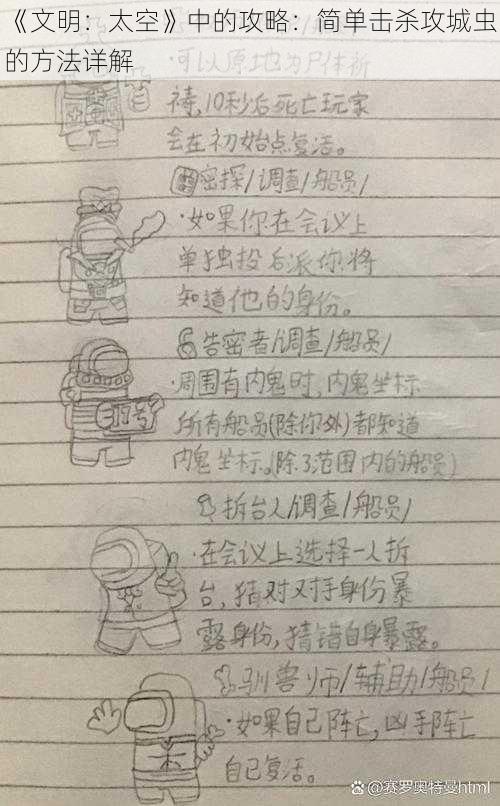 《文明：太空》中的攻略：简单击杀攻城虫
的方法详解
·可以原地为尸体祈
祷,10秒后死亡玩家
会在初始点复活。
密探/调查/船员/
·如果你在会议上
单独投
知道他的身份。
告密者/调查/船员/
·周围有内鬼时,内鬼坐标
所有船员(除你外)都知道
内鬼坐标。(除了范围内的船员)
拆台人/调查/船员/
·在会议上选择一人拆
台,猜对对手身份暴
露身份,猜错自身暴露。
驯兽师/辅助/船员/
·如果自己阵亡,凶手阵亡
自己复活。
@赛罗奥特曼html